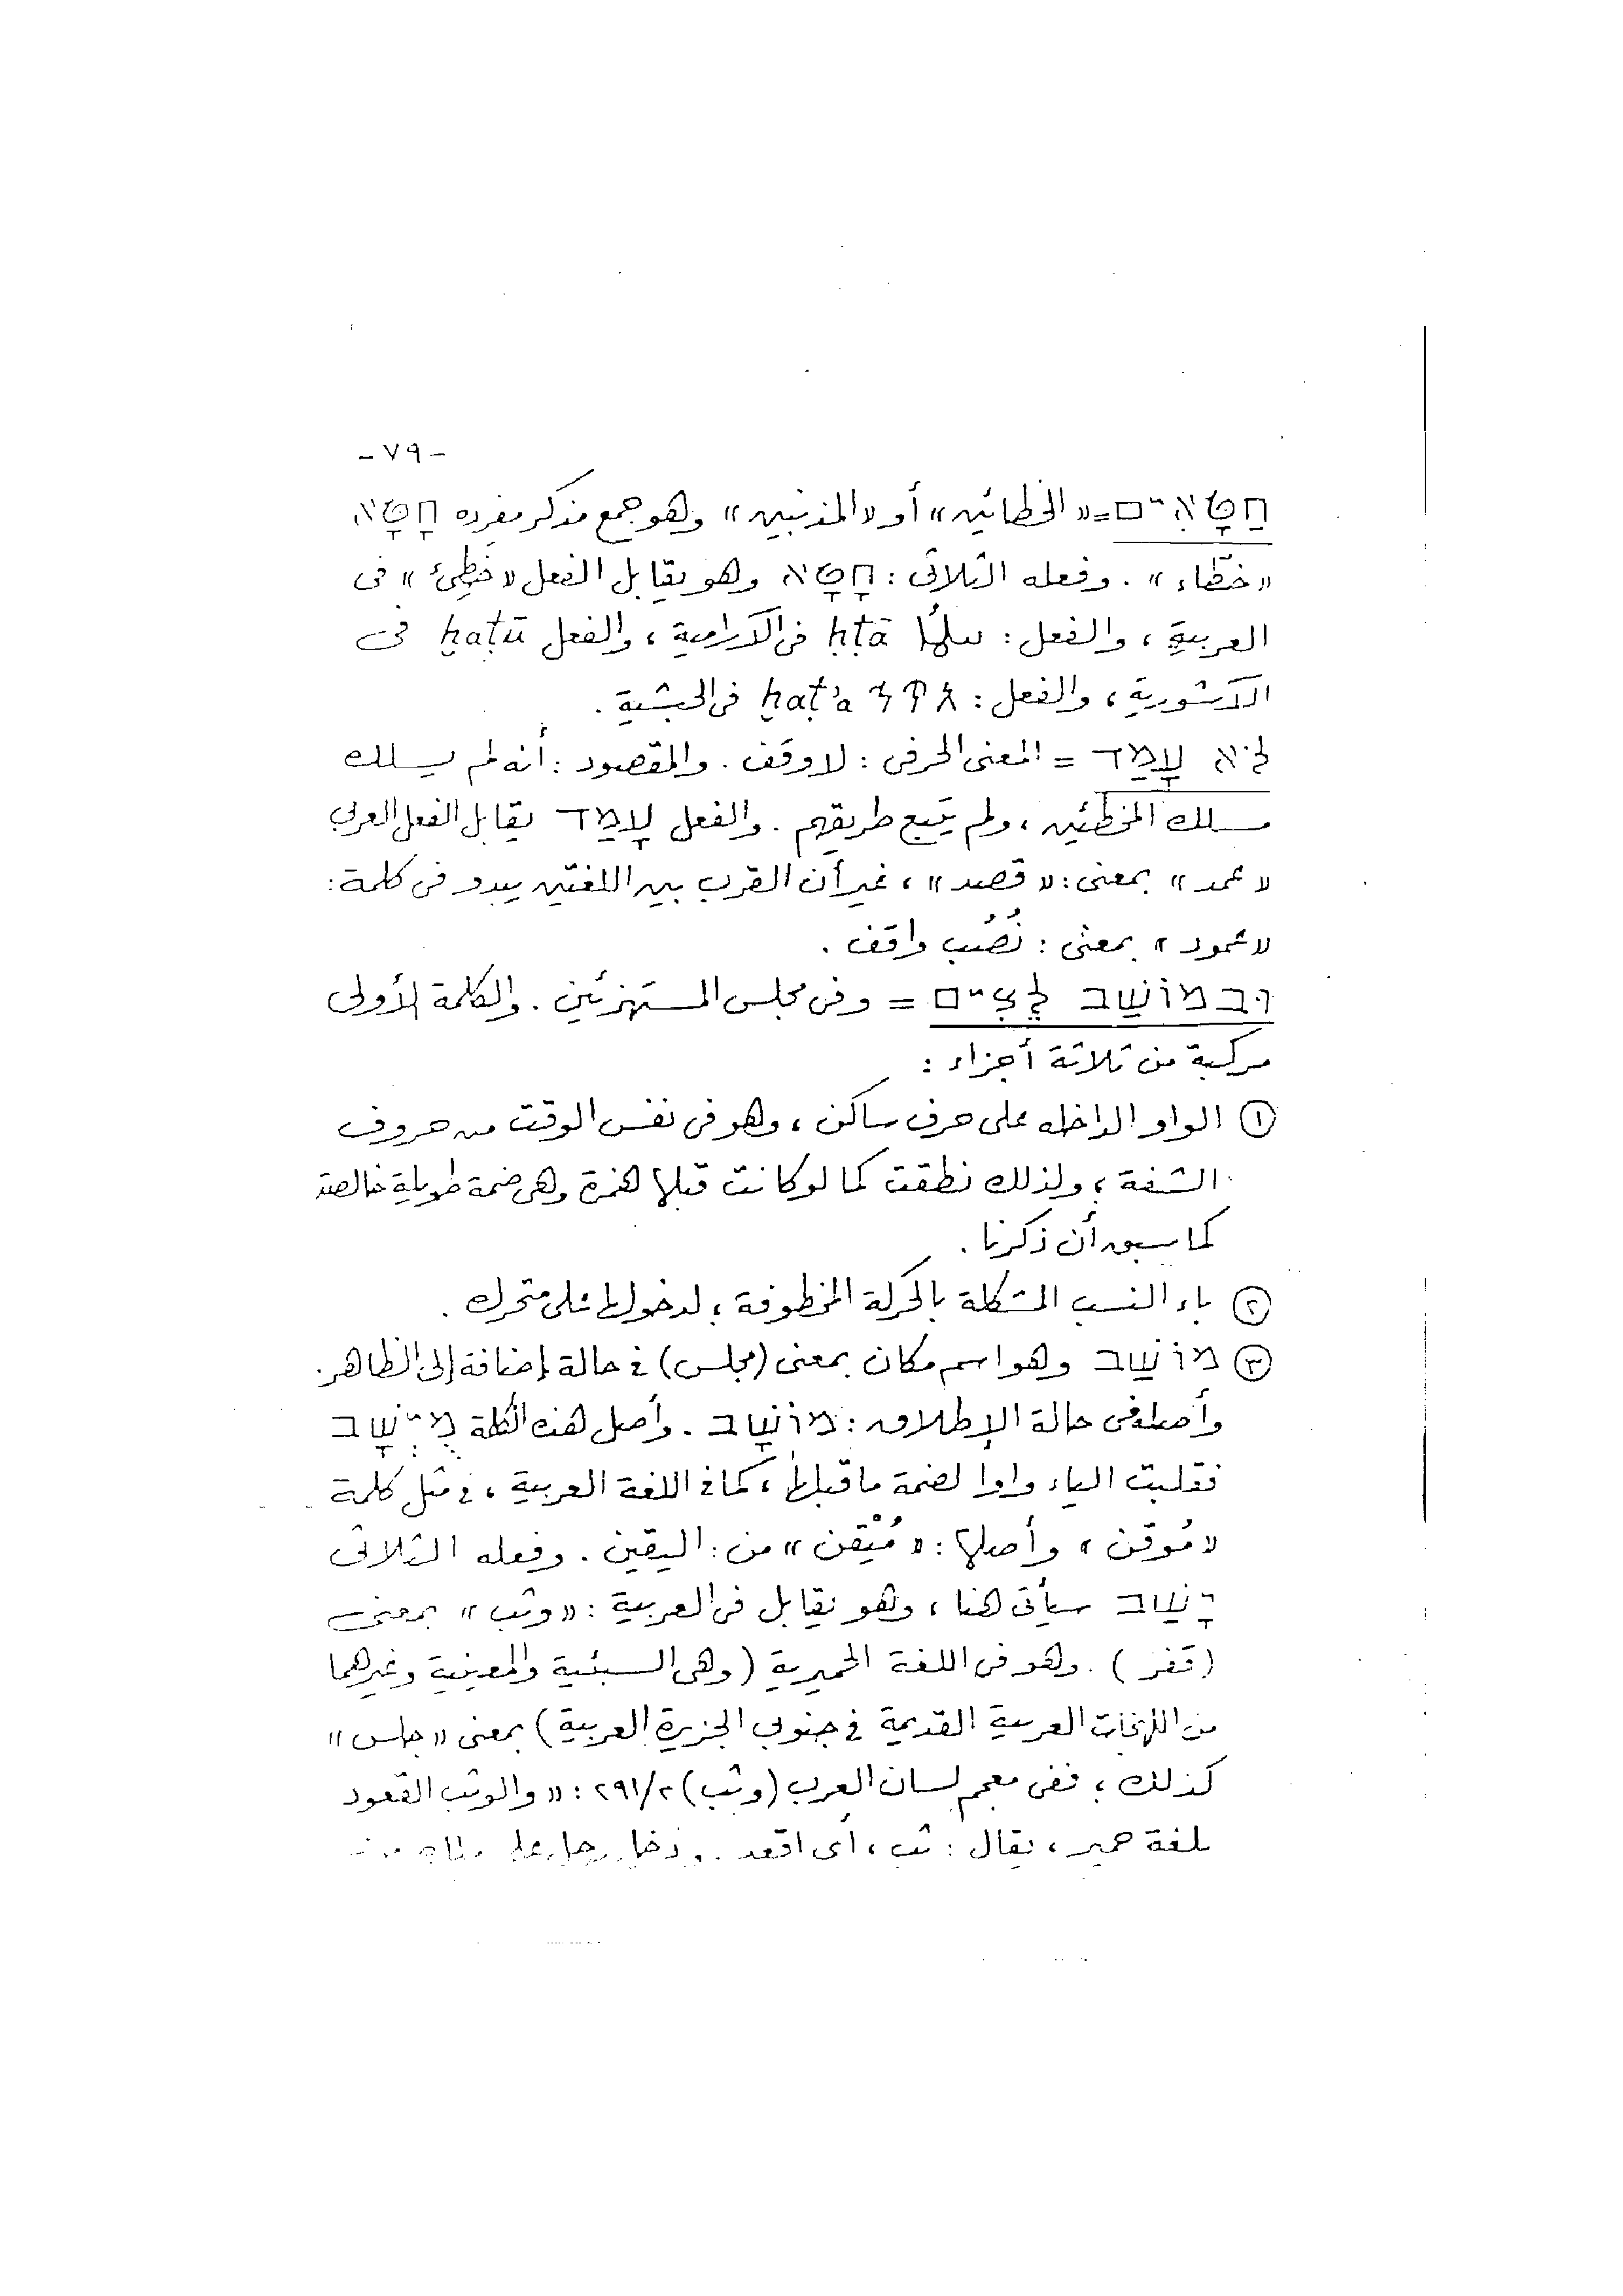 - ٧٩ -
חַטָּאִים = «الخطائين» أو «المذنبين» وهو جمع مذكر مفرده חָטָא
«خطّاء». وفعله الثلاثى: חָטָא وهو يقابل الفعل «خَطِئَ» فى
العربية، والفعل: ܚܛܳܐ ḥṭā فى الآرامية، والفعل ḫaṭū فى
الآشورية، والفعل: ḫaṭ'a فى الحبشية.
לֹא עָמַד = المعنى الحرفى: لا وقف. والمقصود: أنه لم يسلك
مسلك المخطئين، ولم يتبع طريقهم. والفعل עָמַד يقابل الفعل العربى
«عمد» بمعنى: «قصد»، غير أن القرب بين اللغتين يبدو فى كلمة:
«عمود» بمعنى: نُصُب واقف.
וּבְמוֹשַׁב לֵצִים = وفى مجلس المستهزئين. والكلمة الأولى
مركبة من ثلاثة أجزاء:
① الواو الداخله على حرف ساكن، وهو فى نفس الوقت من حروف
الشفة؛ ولذلك نطقت كما لو كانت قبلها همزة وهى ضمة طويلة خالصة
كما سبق أن ذكرنا.
② باء النسب المشكلة بالحركة المخطوفة؛ لدخولها على متحرك.
③ מוֹשַׁב وهو اسم مكان بمعنى (مجلس) فى حالة إضافة إلى الظاهر.
وأصله فى حالة الإطلاق: מוֹשָׁב. وأصل هذه الكلمة מֻיְשָׁב
فقلبت الياء واوا لضمة ما قبلها، كما فى اللغة العربية، فى مثل كلمة
«مُوقن» وأصلها: «مُيْقن» من: اليقين. وفعله الثلاثى
יָשַׁב سيأتى هنا، وهو يقابل فى العربية: «وثب» بمعنى
(قفز). وهو فى اللغة الحميرية (وهى السبئية والمعينية وغيرهما
من اللهجات العربية القديمة فى جنوبى الجزيرة العربية) بمعنى «جلس»
كذلك؛ ففى معجم لسان العرب (وثب) ٢٩١/٢: «والوثب القعود
بلغة حمير، يقال: ثب، أى اقعد. ودخل رجل على ملك من